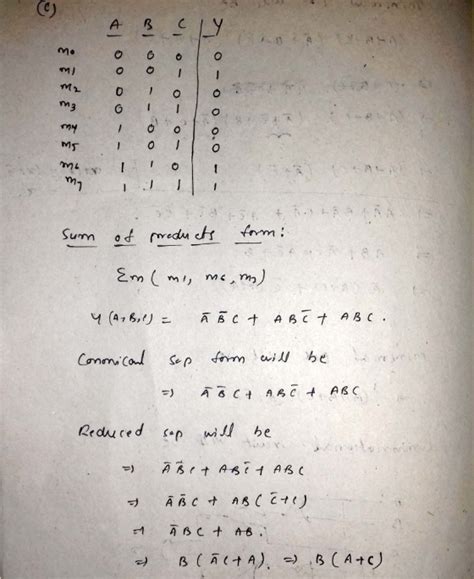 (c)
A B C Y
m0 0 0 0 0
m1 0 0 1 1
m2 0 1 0 0
m3 0 1 1 0
m4 1 0 0 0
m5 1 0 1 0
m6 1 1 0 1
m7 1 1 1 1
Sum of products form:
Σm ( m1, m6, m7)
Y (A,B,C) = A̅ B̅ C + A B C̅ + A B C .
Cononical sop form will be
=) A̅ B̅ C + A B C̅ + ABC
Reduced sop will be
=) A̅ B̅ C + A B C̅ + ABC
=) A̅ B̅ C + AB ( C̅ + C)
=) A̅ B C + AB .
=) B ( A̅ C + A) . =) B (A+C)